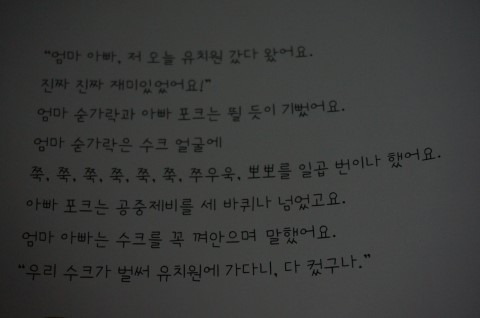 "엄마 아빠, 저 오늘 유치원 갔다 왔어요.
진짜 진짜 재미있었어요!"
엄마 숟가락과 아빠 포크는 뛸 듯이 기뻤어요.
엄마 숟가락은 수크 얼굴에
쪽, 쪽, 쪽, 쪽, 쪽, 쪽, 쭈우욱, 뽀뽀를 일곱 번이나 했어요.
아빠 포크는 공중제비를 세 바퀴나 넘었고요.
엄마 아빠는 수크를 꼭 껴안으며 말했어요.
"우리 수크가 벌써 유치원에 가다니, 다 컸구나."